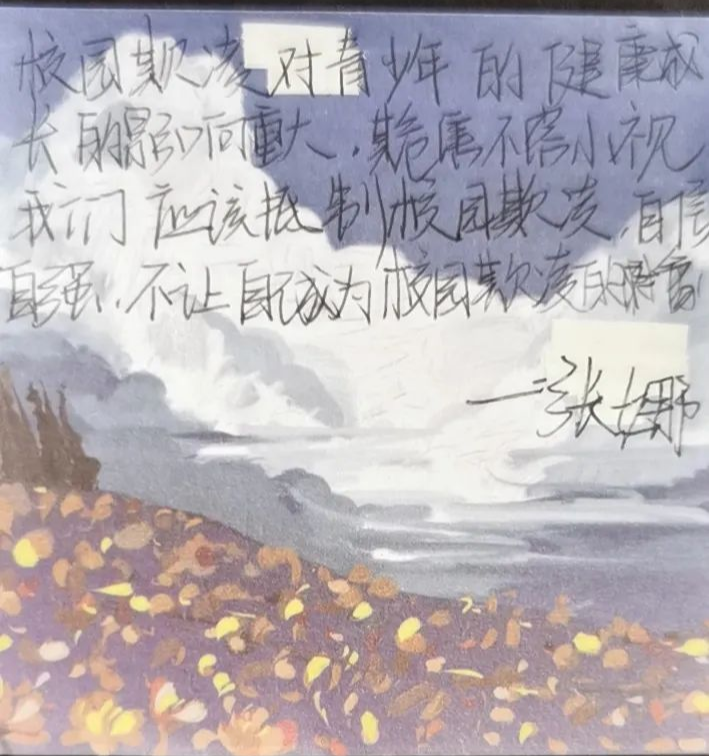 校园欺凌对青少年的健康成
长的影响重大,危害不容小视
我们应该抵制校园欺凌,自信
自强,不让自己成为校园欺凌的
—张娜